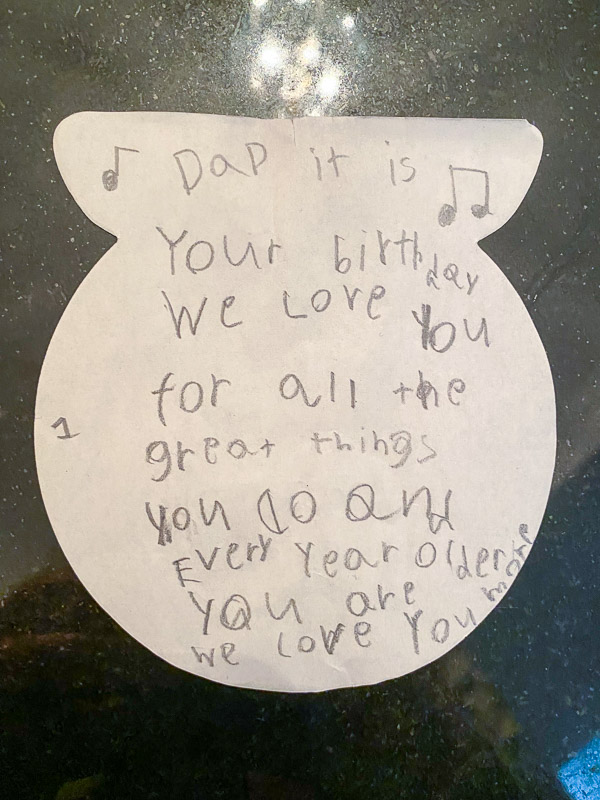 ♪ DaD it is ♫
Your birthday
We Love You
for all the
1
great things
you do and
Every year older
you are
we love you more